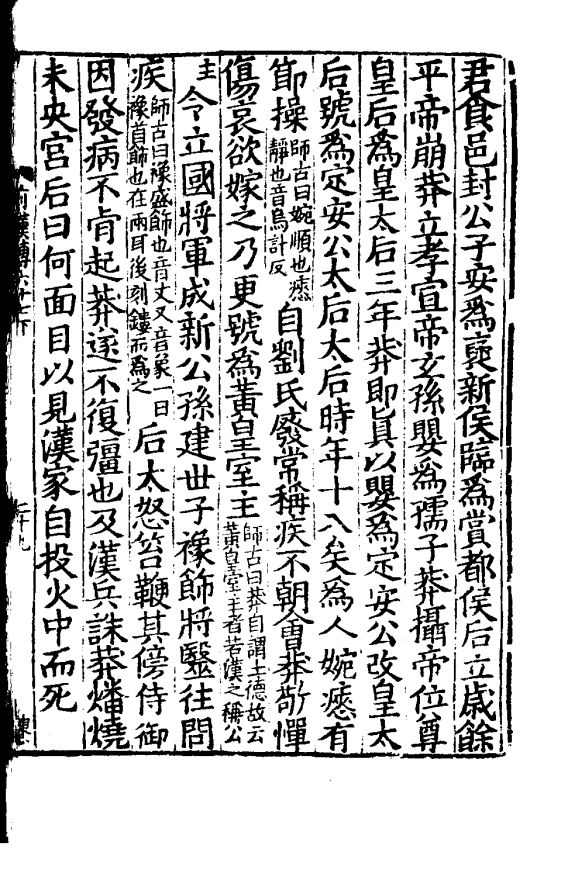 君食邑封公子安爲襃新侯臨爲賞都侯后立歲餘
平帝崩莽立孝宣帝玄孫嬰爲孺子莽攝帝位尊
皇后爲皇太后三年莽即眞以嬰爲定安公改皇太
后號爲定安公太后太后時年十八矣爲人婉瘱有
節操師古曰婉順也瘱靜也音烏計反自劉氏廢常稱疾不朝會莽敬憚
傷哀欲嫁之乃更號爲黃皇室主師古曰莽自謂土德故云黃皇室主者若漢之稱公主
令立國將軍成新公孫建世子襐飾將毉往問
疾師古曰襐盛飾也音丈又音象一曰襐首飾也在兩耳後刻鏤而爲之后大怒笞鞭其傍侍御
因發病不肯起莽遂不復彊也及漢兵誅莽燔燒
未央宮后曰何面目以見漢家自投火中而死